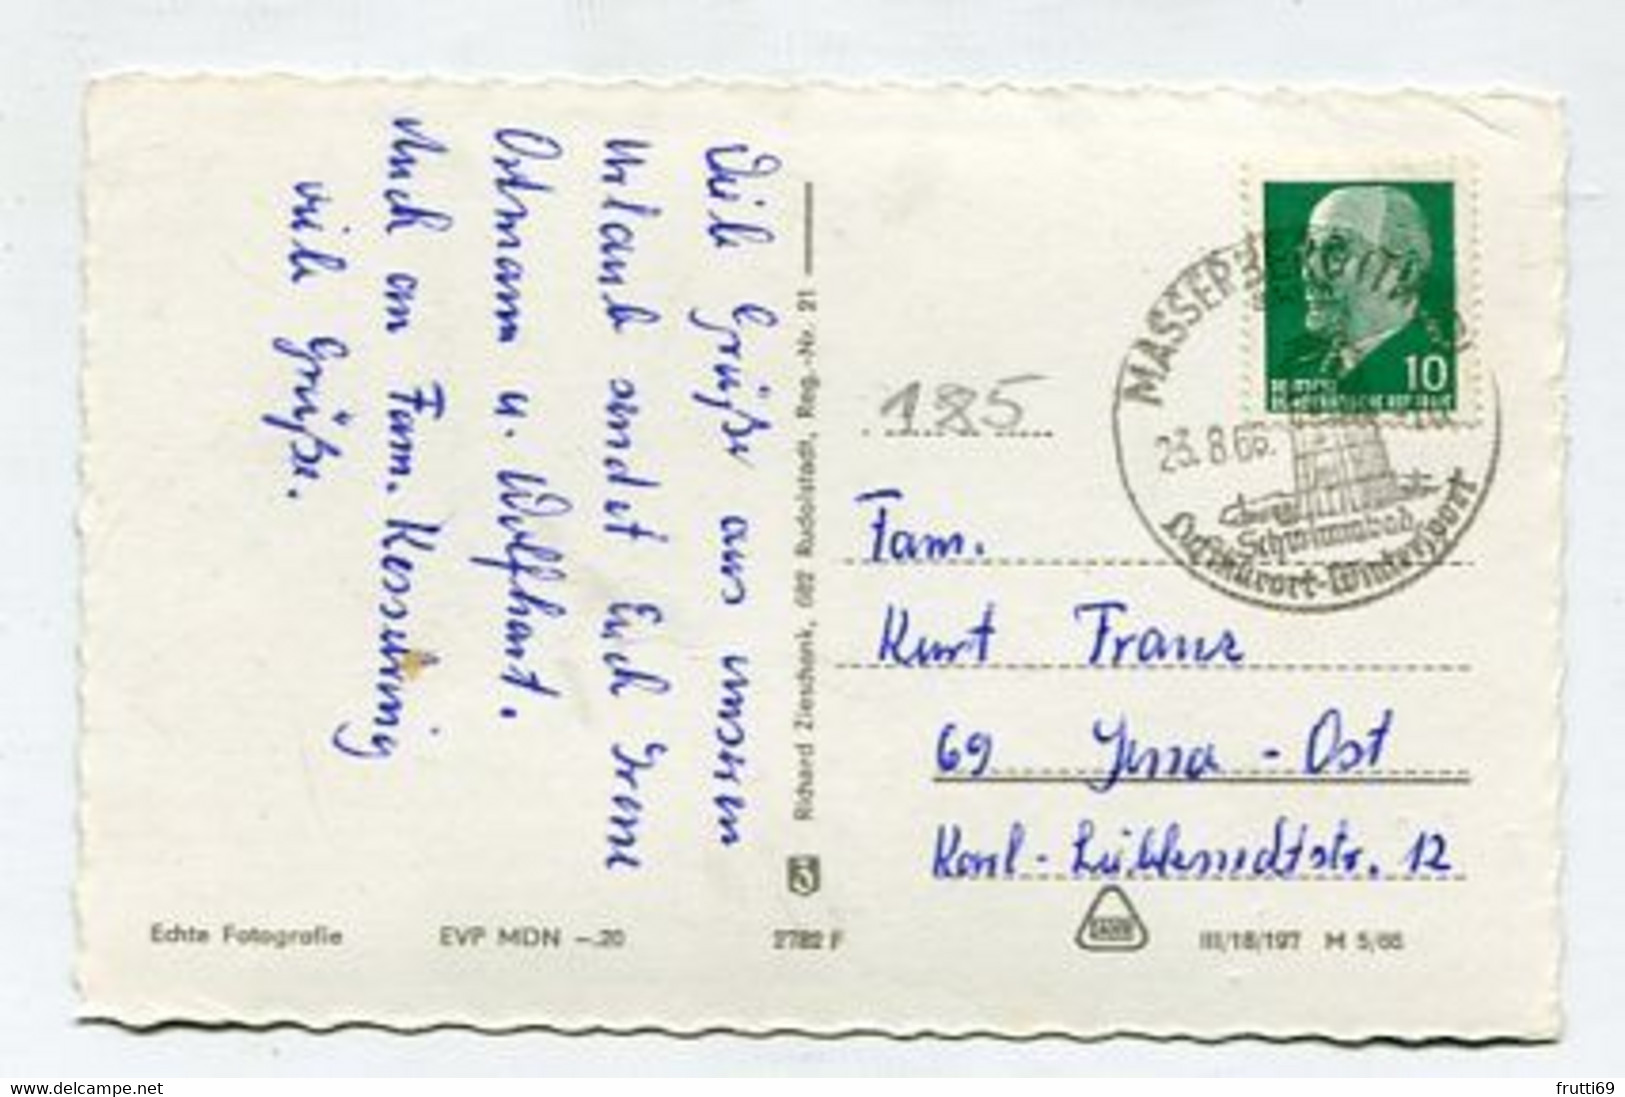 Viele Grüße aus unserem
Urlaub sendet Euch Irene
Ostmann u. Wolfhart.
Auch an Fam.
viele Grüße.
Richard Zieschank, 682 Rudolstadt, Reg.-Nr. 21
185
MASSERBERG (THÜR)
23.8.66
10
DEUTSCHE
DEMOKRATISCHE REPUBLIK
Schwimmbad
Luftkurort-Wintersport
Fam.
Kurt Franz
69 Jena - Ost
Karl-Liebknechtstr. 12
Echte Fotografie
EVP MDN -.20
2782 F
III/18/197 M 5/66
frutti69
delcampe.net